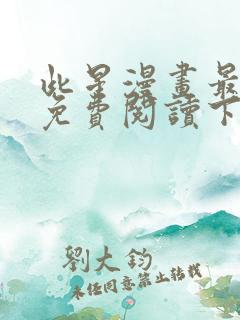 此星漫畫最
免費閱讀下
劉大鈞
未经同意禁止转载